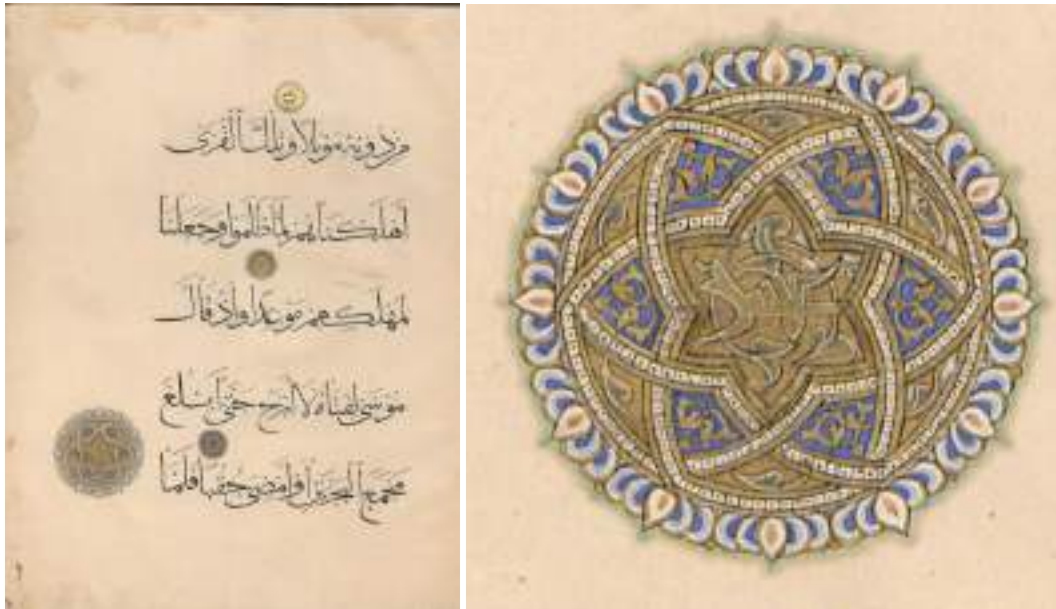 من دونه موئلا وتلك القرى
أهلكناهم لما ظلموا وجعلنا
لمهلكهم موعدا وإذ قال
موسى لفتاه لا أبرح حتى أبلغ
مجمع البحرين أو أمضي حقبا فلما